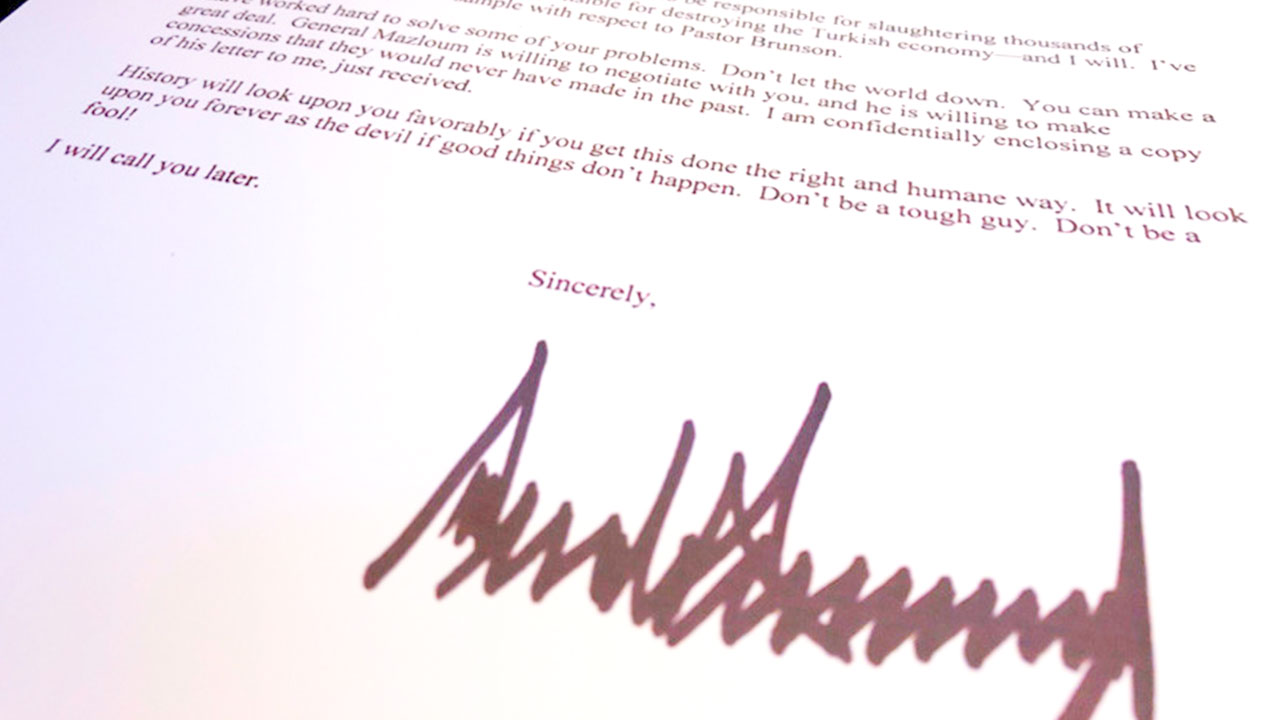 be responsible for slaughtering thousands of
for destroying the Turkish economy—and I will. I've
with respect to Pastor Brunson.
worked hard to solve some of your problems. Don't let the world down. You can make a
great deal. General Mazloum is willing to negotiate with you, and he is willing to make
concessions that they would never have made in the past. I am confidentially enclosing a copy
of his letter to me, just received.
History will look upon you favorably if you get this done the right and humane way. It will look
upon you forever as the devil if good things don't happen. Don't be a tough guy. Don't be a
fool!
I will call you later.
Sincerely,